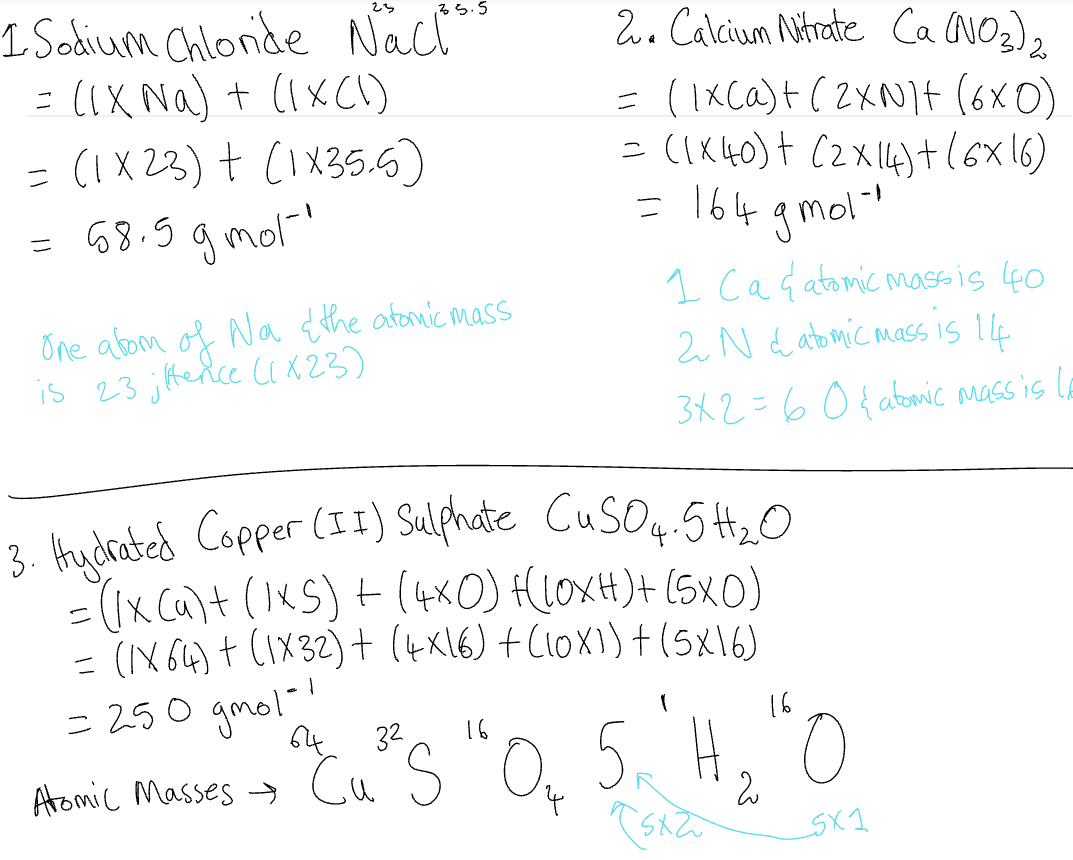 1 Sodium Chloride Na²³Cl³⁵·⁵
= (1 X Na) + (1 X Cl)
= (1 X 23) + (1 X 35.5)
= 58.5 g mol⁻¹
One atom of Na & the atomic mass
is 23; Hence (1 X 23)
2. Calcium Nitrate Ca(NO₃)₂
= (1XCa) + (2XN) + (6XO)
= (1X40) + (2X14) + (6X16)
= 164 g mol⁻¹
1 Ca & atomic mass is 40
2 N & atomic mass is 14
3X2 = 6 O & atomic mass is 16
3. Hydrated Copper (II) Sulphate CuSO₄.5H₂O
= (1X Cu) + (1XS) + (4XO) + (10XH) + (5XO)
= (1X64) + (1X32) + (4X16) + (10X1) + (5X16)
= 250 gmol⁻¹
Atomic Masses → ⁶⁴Cu ³²S ¹⁶O₄ 5 ¹H₂ ¹⁶O
5X2 5X1